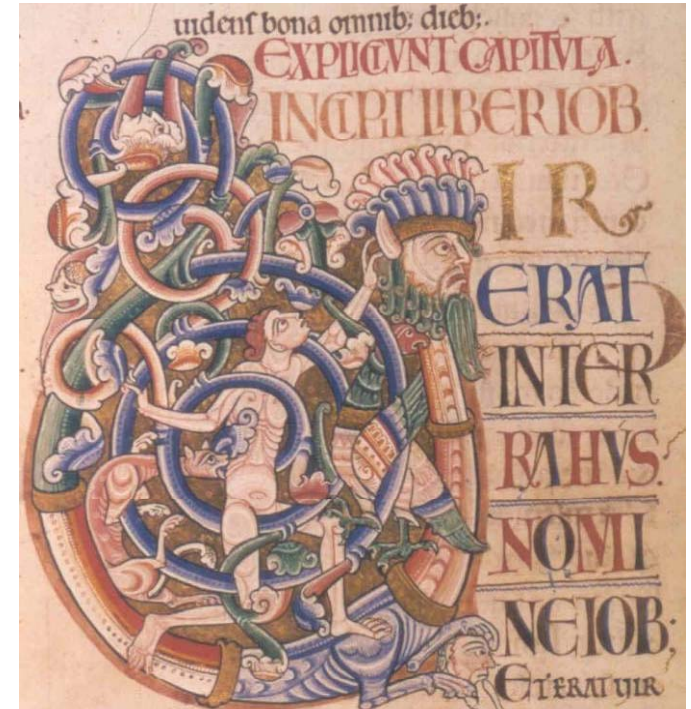 uidens bona omnib; dieb;.
EXPLICIVNT CAPITVLA.
INCIPIT LIBER IOB.
IR
ERAT
INTER
RAHVS.
NOMI
NE IOB;
ET ERAT UIR